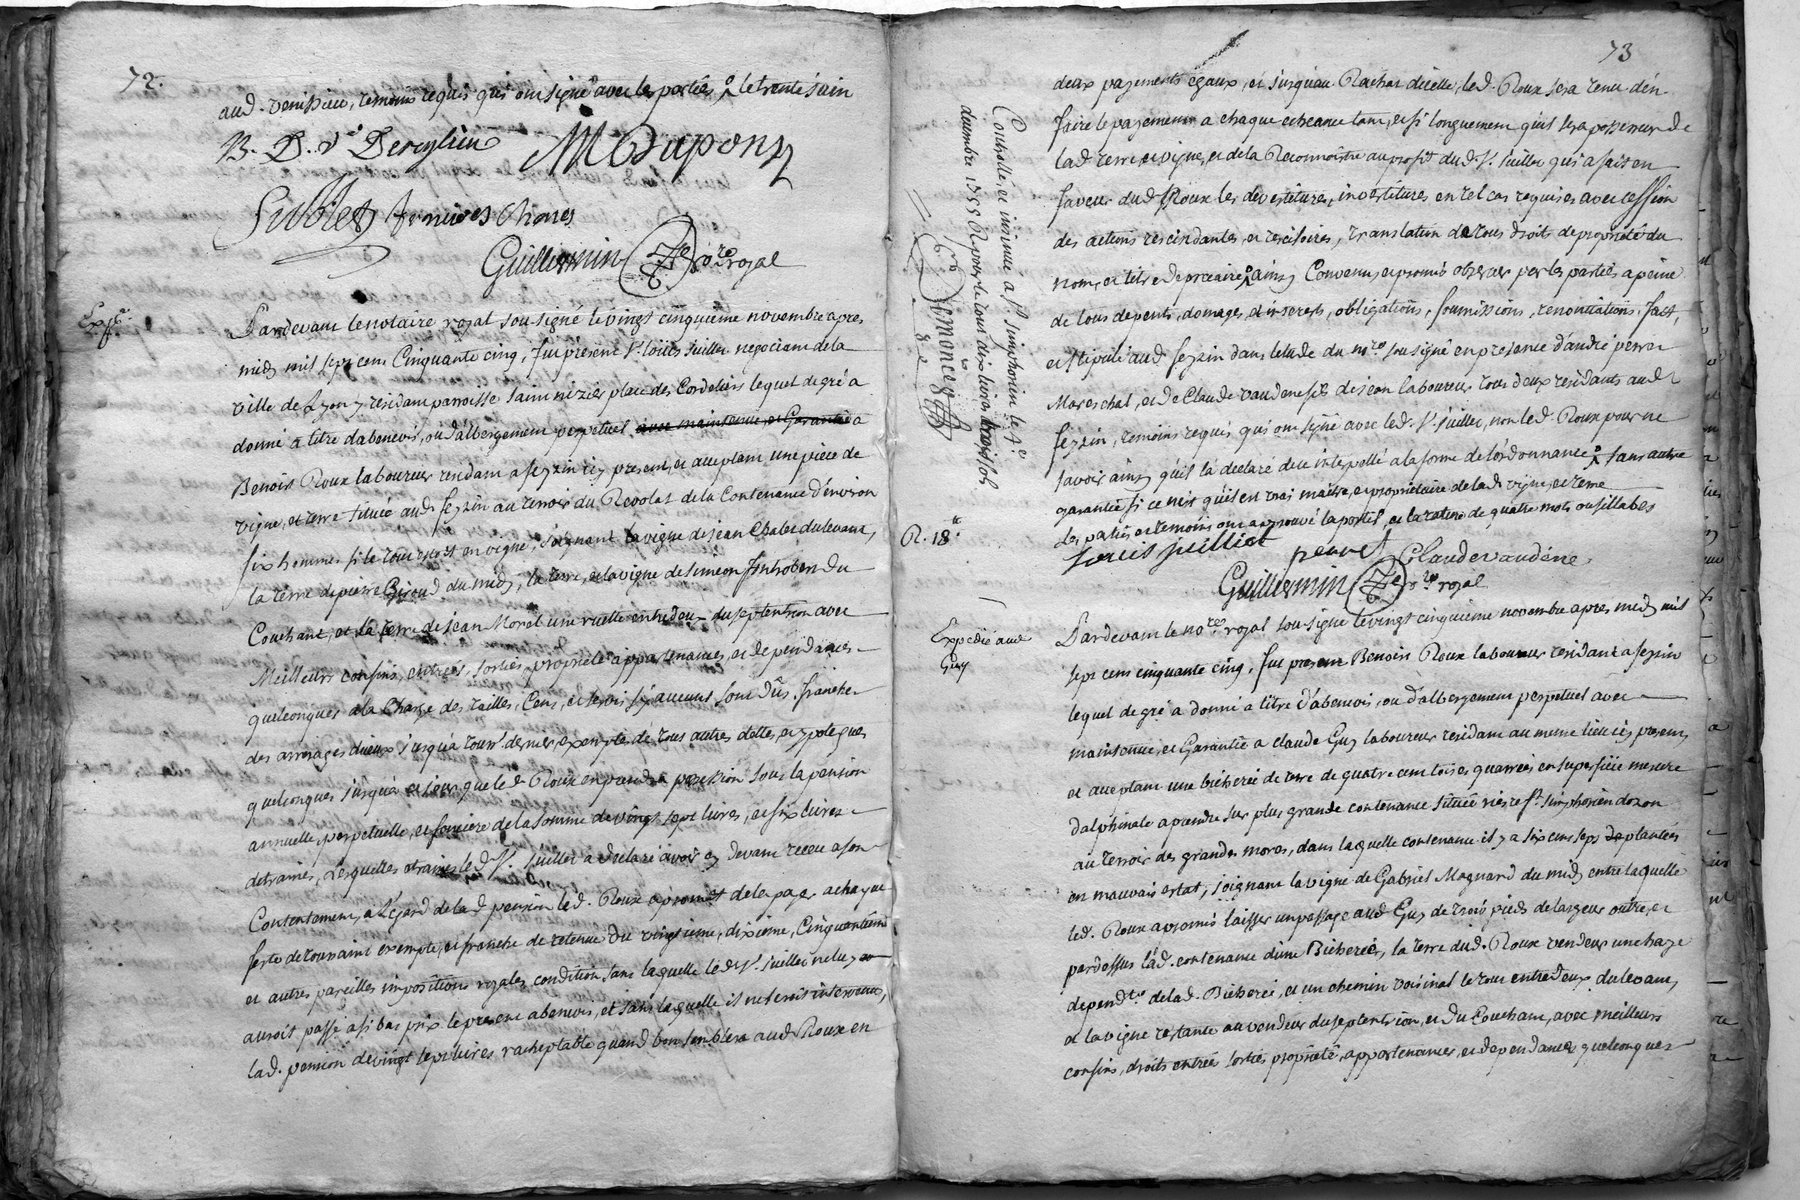 72.
aud. venissieu, temoins requis qui ont signé avec les parties, le trente juin
B. D. Vc Dereylieu M Dupont
Sublet
Guillermin nore royal
Expé.
Pardevant le notaire royal sousigné le vingt cinquieme novembre apres
midy mil sept cens Cinquante cinq, fut présent Sr. Loüis Juillet negociant de la
ville de Lyon y residant parroisse saint nézier place des Cordeliers lequel de gré a
donné a titre d'abenevis, ou d'albergement perpetuel avec maintenüe, et Garantie a
Benoit Roux laboureur residant a feyzin icy present, et acceptant une piéce de
vigne, et terre située aud. feyzin au terroir du Revolat de la Contenance d'environ
six hommes si le tout etoit en vigne, joignant la vigne de jean Chalet du levant,
la terre de pierre Giroud du midy, la terre, et la vigne de simeon Jonhoben du
Couchant, et la terre de jean Morel une ruelle entredeux du septentrion avec
Meilleurs confins, entrées, sorties, propriété appartenances, et dependances
quelconques a la Charge des tailles, Cens, et servis s'y aucuns sont dûs, franche
des arrerages d'iceux jusqu'a touss. dernier, exempte de tous autres dettes, et ypoteques
quelconques jusqu'a ce jour que led. Roux en prendra possession sous la pension
annuelle, perpetuelle, et fonciere de la somme de vingt sept livres, et six livres
detraines, Lesquelles etraines led. Sr. Juillet a declaré avoir cy devant receu a son
Contentement, a l'Egard de lad. pension led. Roux a promis de la payer a chaque
feste de toussaint exempte, et franche de retenue du vingtieme, dixieme, Cinquantieme
et autres pareilles impositions royales condition sans laquelle led. Sr. Juillet ne luy
auroit passé a si bas prix le present abenevis, et sans laquelle il ne seroit intervenu,
lad. pension de vingt sept livres racheptable quand bon semblera aud. Roux en
73
deux payements égaux, et jusqu'au Rachat d'icelle, led. Roux sera tenu d'en
faire le payement a chaque echeance tant, et si longuement qu'il sera possesseur de
lad. terre et vigne, et de la Reconnoître au profit dud. Sr. Juillet qui a fait en
faveur dud. Roux les devestitures, investitures en tel cas requises avec cession
des actions rescindantes, et rescisoires, translation de tous droits de propriété du
nom, et titre de precaire, ainsy Convenu, et promis observer par les parties a peine
de tous depents, domages, et interests, obligations, soumissions, renonciations, fait,
et stipulé aud. feyzin dans l'etude du nore. sousigné en presence d'andré perret
Mareschal, et de Claude vaudene fils de jean laboureur tous deux residants aud.
feyzin, temoins requis qui ont signé avec led. Sr. Juillet, non led. Roux pour ne
savoir ainsy qu'il l'a declaré de ce interpellé a la forme de l'ordonnance, sans autre
garantie si ce n'est qu'il est vray maître, et propriétaire de lad. vigne, et terre
les parties et temoins ont approuvé l'apostil, et la rature de quatre mots ou sillabes
Louis Juilliet perret Claude vaudéne
Guillermin nore royal
Controllé, et insinué a St. simphorien le 4e
decembre 1755 Reçu
Simond
R. 18.tt
Expedié aud.
Guy
Pardevant le nore. royal sousigné le vingt cinquieme novembre apres midy mil
sept cens cinquante cinq, fut present Benoit Roux laboureur residant a feyzin
lequel de gré a donné a titre d'abenevis, ou d'albergement perpetuel avec
maintenue, et Garantie a claude Guy laboureur residant au meme lieu icy present,
et acceptant une bicherée de terre de quatre cent toises quarrées en superficie mesure
dalphinale a prendre sur plus grande contenance située riére St. simphorien dozon
au terroir des grandes mores, dans laquelle contenance il y a six cens seps de plantées
en mauvais estat, joignant la vigne de Gabriel Magnard du midy entre laquelle
led. Roux a promis laisser un passage aud. Guy de trois pieds de largeur outre, et
pardessus lad. contenance d'une Bicherée, la terre dud. Roux vendeur une haye
dependte. de lad. Bicherée, et un chemin voisinal le tout entredeux du levant,
et la vigne restante au vendeur du septentrion, et du Couchant, avec meilleurs
confins, droits entrées sorties propriété, appartenances, et dependances quelconques